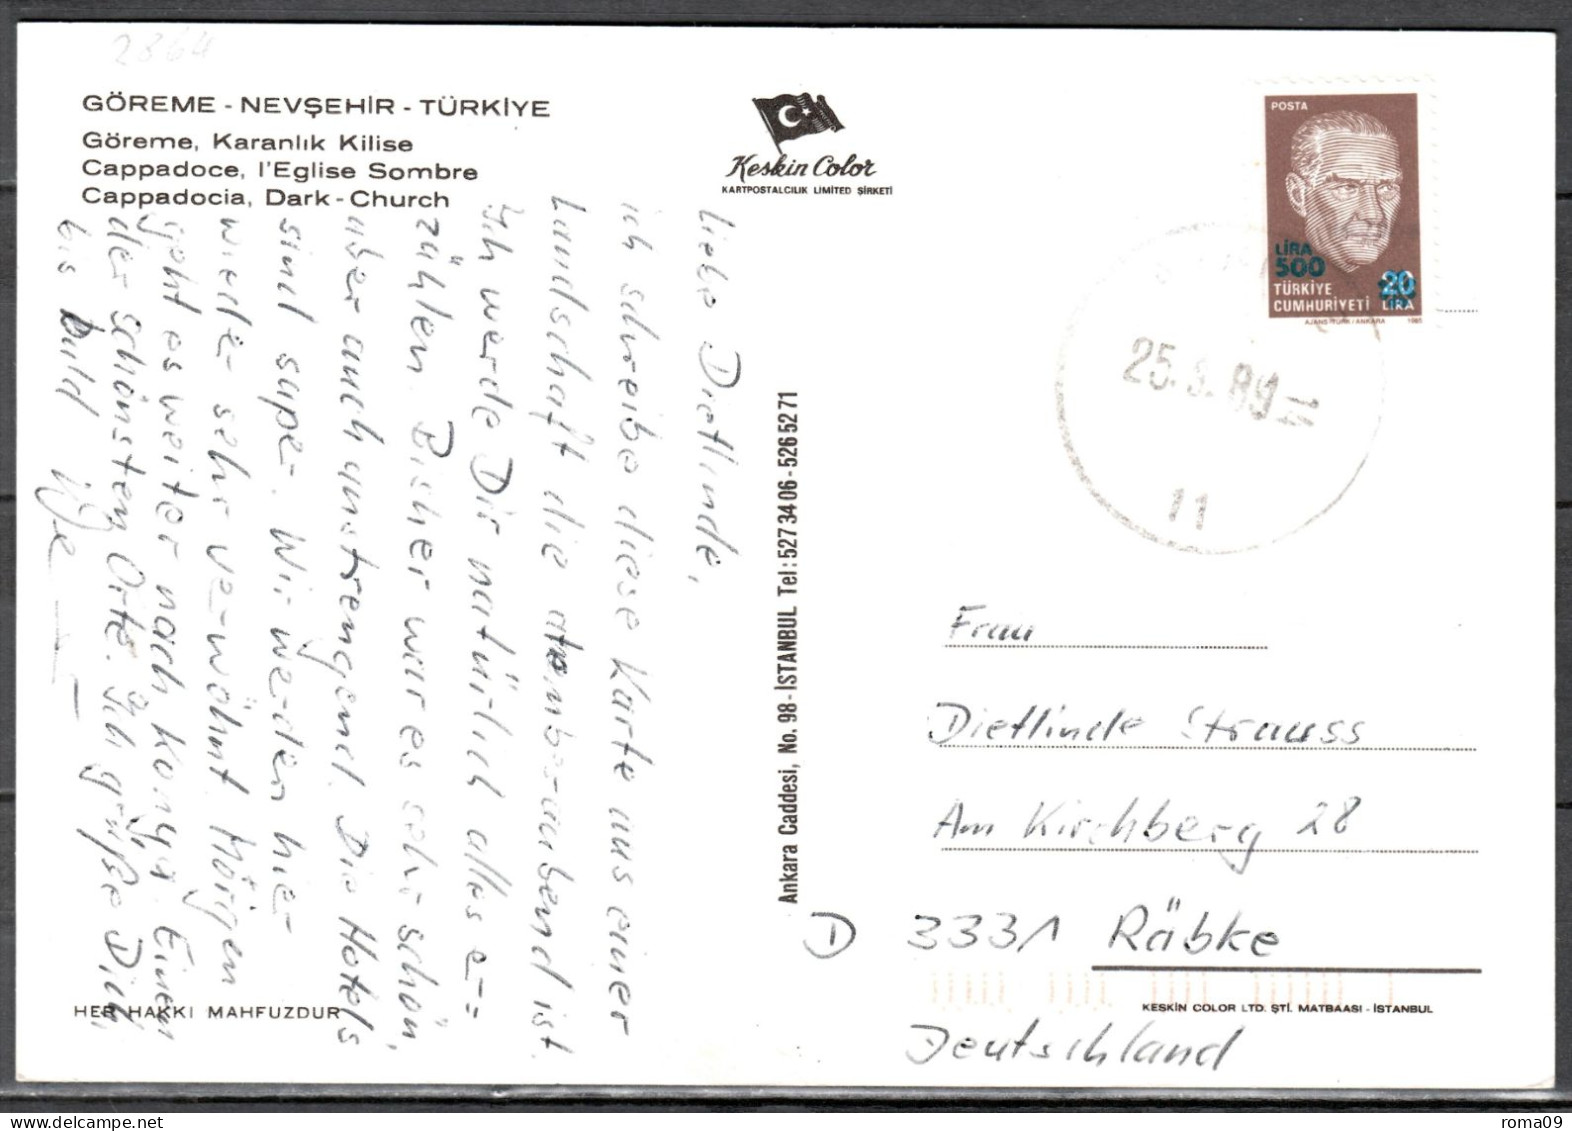 2864
GÖREME - NEVŞEHİR - TÜRKİYE
Göreme, Karanlık Kilise
Cappadoce, l'Eglise Sombre
Cappadocia, Dark - Church
Keskin Color
KARTPOSTALCILIK LIMITED ŞİRKETİ
POSTA
LİRA
500
20
LİRA
TÜRKİYE
CUMHURİYETİ
AJANS-TÜRK / ANKARA 1985
25. 89
11
Liebe Dietlinde,
ich schreibe diese Karte aus einer
Landschaft die atemberaubend ist.
Ich werde Dir natürlich alles er=
zählen. Bisher war es sehr schön,
aber auch anstrengend. Die Hotels
sind super. Wir werden hier
wieder sehr verwöhnt. Morgen
geht es weiter nach Konya. Einem
der schönsten Orte. Ich grüße Dich,
bis bald
Ankara Caddesi, No. 98 - İSTANBUL Tel: 527 34 06 - 526 52 71
Frau
Dietlinde Strauss
Am Kirchberg 28
D 3331 Räbke
Deutschland
HER HAKKI MAHFUZDUR
KESKİN COLOR LTD. ŞTİ. MATBAASI - İSTANBUL
roma09